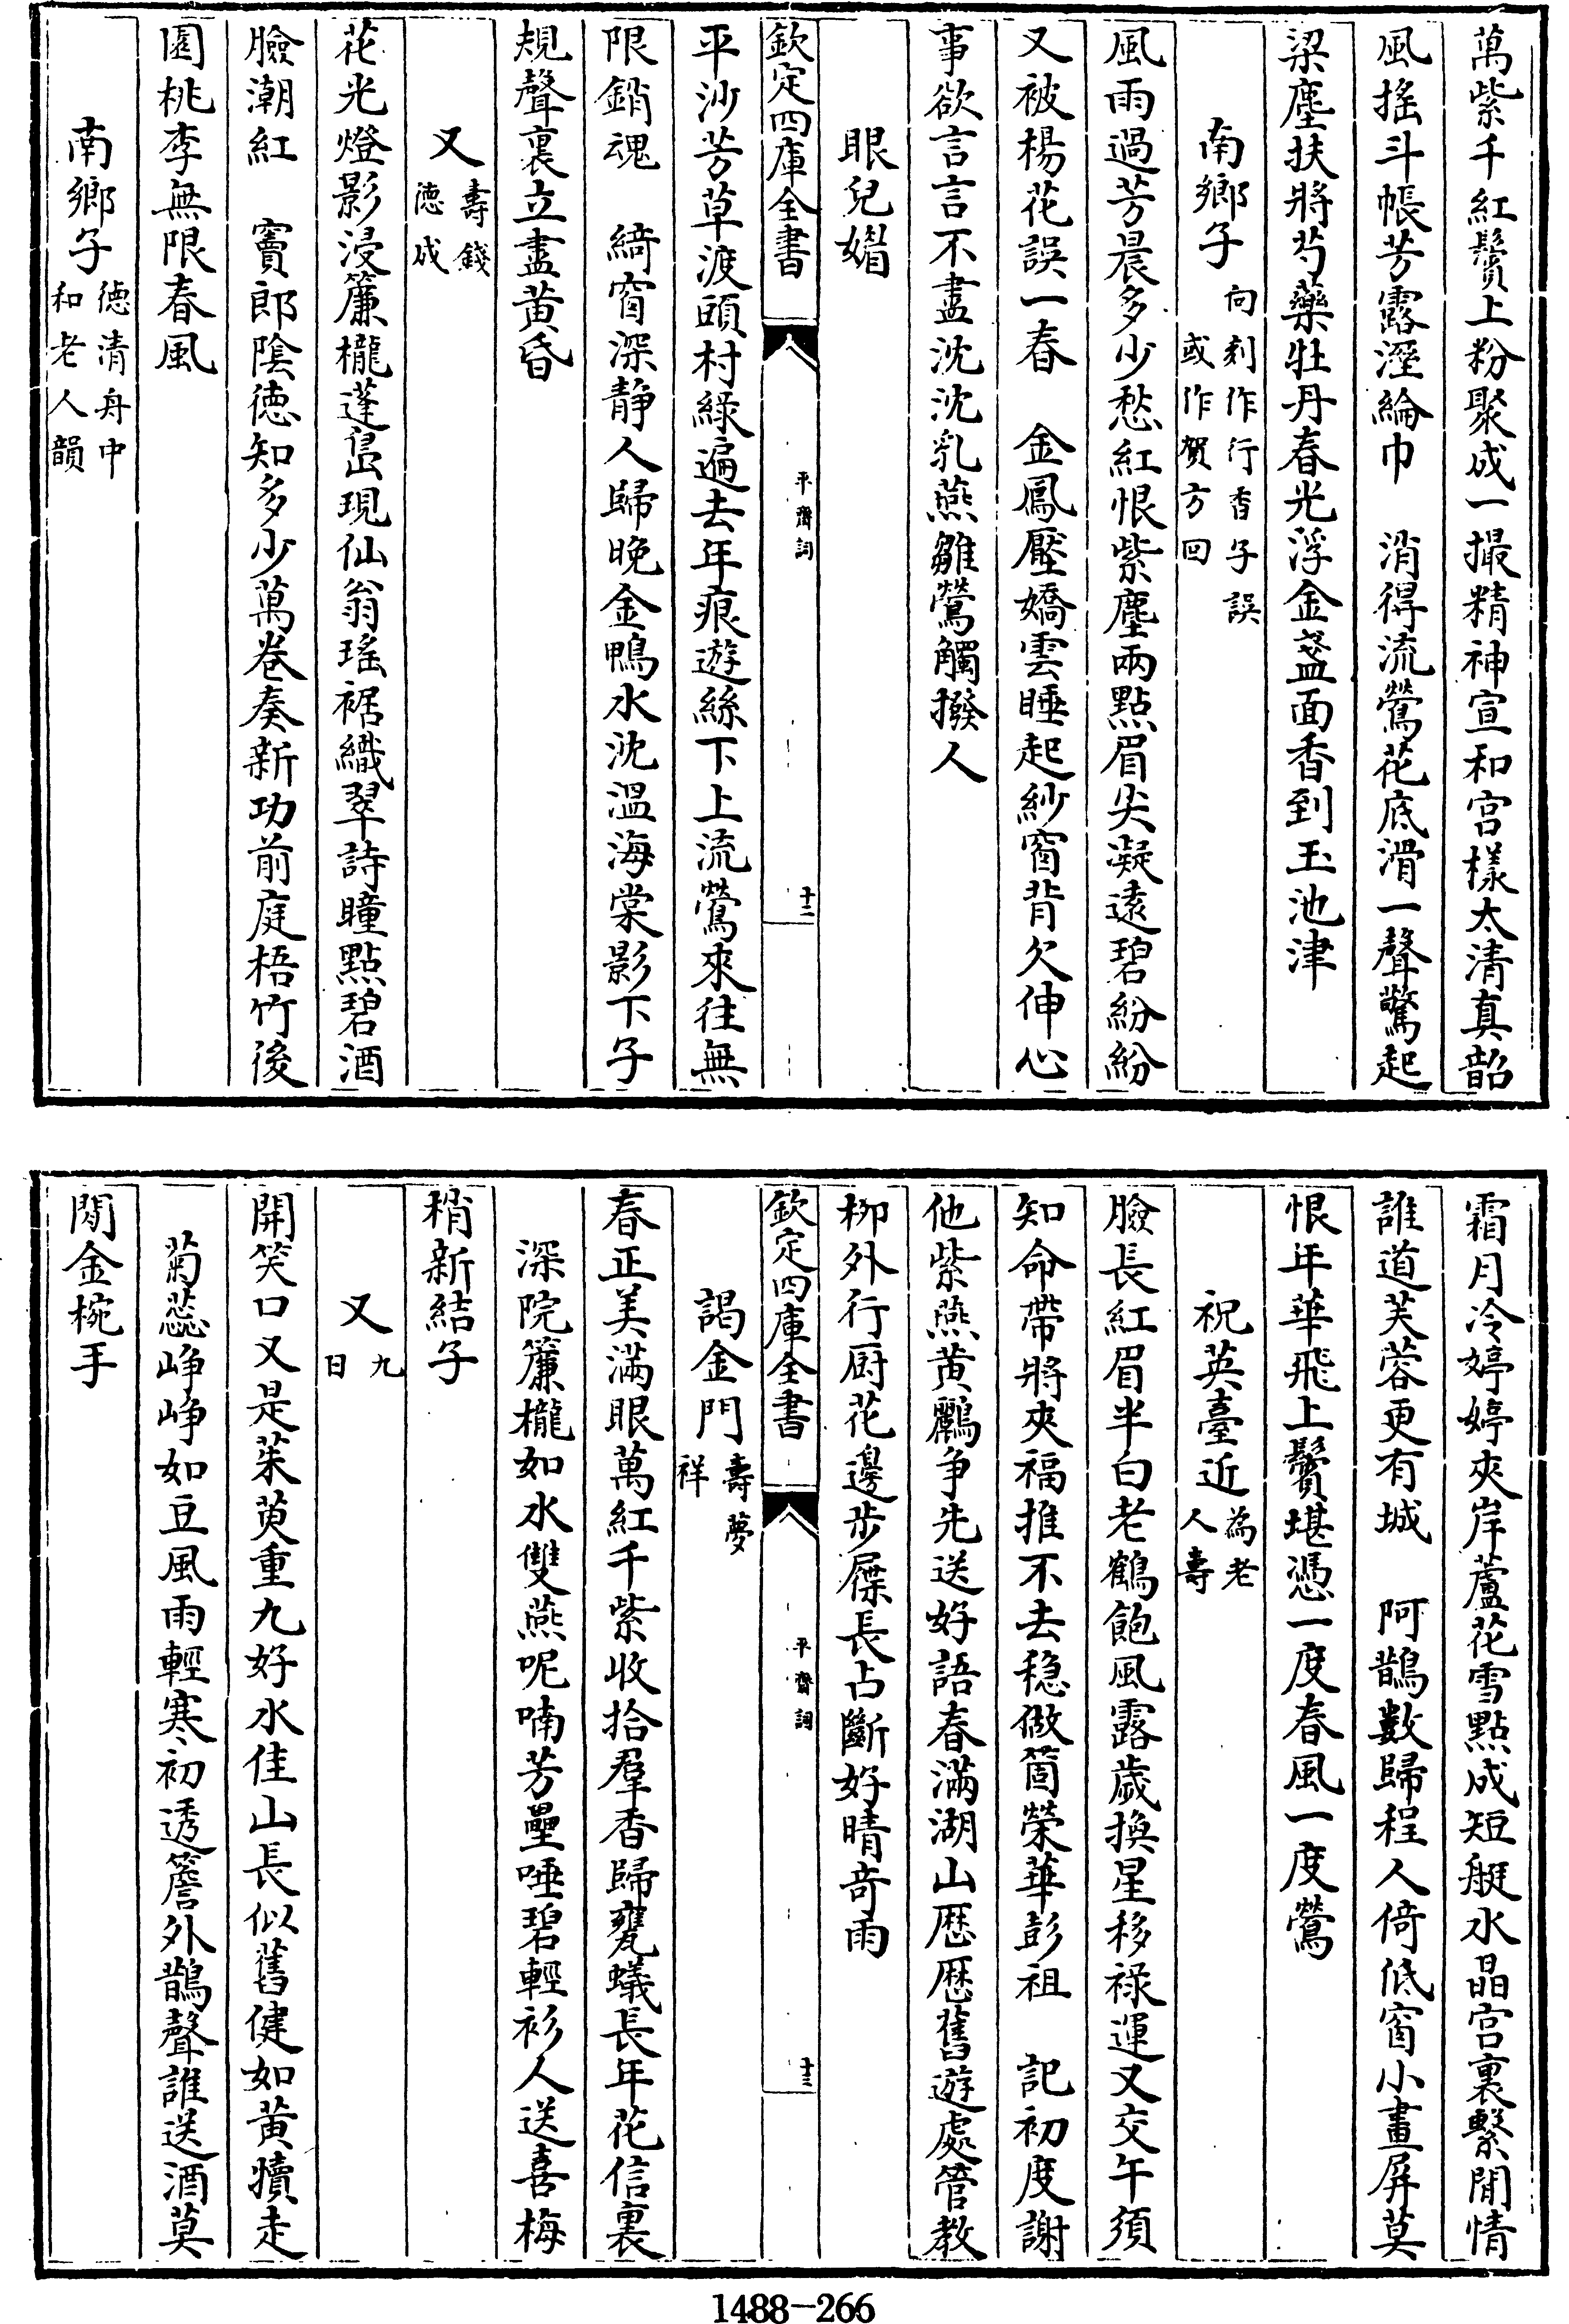 萬紫千紅鬢上粉聚成一撮精神宣和宫樣太清真韶
風摇斗帳芳露溼綸巾　消得流鶯花底滑一聲驚起
梁塵扶將芍藥牡丹春光浮金盞面香到玉池津
南鄉子 向刻作行香子誤
或作賀方回
風雨過芳晨多少愁紅恨紫塵兩點眉尖凝遠碧紛紛
又被楊花誤一春　金鳳壓嬌雲睡起紗窗背欠伸心
事欲言言不盡沈沈乳燕雛鶯觸撥人
眼兒媚
欽定四庫全書　平齋詞　十二
平沙芳草渡頭村綠遍去年痕遊絲下上流鶯來往無
限銷魂　綺窗深静人歸晚金鴨水沈溫海棠影下子
規聲裏立盡黄昏
又 壽錢
德成
花光燈影浸簾櫳蓬島現仙翁瑤裾織翠詩瞳點碧酒
臉潮紅　竇郎陰德知多少萬卷奏新功前庭梧竹後
園桃李無限春風
南鄉子 德清舟中
和老人韻
霜月冷婷婷夾岸蘆花雪點成短艇水晶宫裏繫閒情
誰道芙蓉更有城　阿鵲數歸程人倚低窗小畫屏莫
恨年華飛上鬢堪憑一度春風一度鶯
祝英臺近 為老
人壽
臉長紅眉半白老鶴飽風露歲換星移祿運又交午須
知命帶將夾福推不去穏做箇榮華彭祖　記初度謝
他紫燕黄鸝争先送好語春滿湖山歴歴舊遊處管教
柳外行厨花邊步屧長占斷好晴奇雨
欽定四庫全書　平齋詞　十三
謁金門 壽夢
祥
春正美滿眼萬紅千紫收拾羣香歸甕蟻長年花信裏
深院簾櫳如水雙燕呢喃芳壘唾碧輕衫人送喜梅
梢新結子
又 九
日
開笑口又是茱萸重九好水佳山長似舊健如黄犢走
菊蕊峥峥如豆風雨輕寒初透簷外鵲聲誰送酒莫
閒金椀手
1488—266